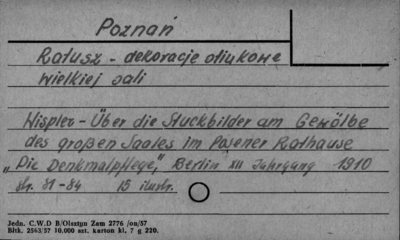 Poznań
Ratusz - dekoracje stiukowe
wielkiej sali
Wispler - Über die Stuckbilder am Gewölbe
des großen Saales im Posener Rathause
„Die Denkmalpflege," Berlin XII Jahrgang 1910
str. 81-84 15 ilustr.
Jedn. C.W.D B/Olsztyn Zam 2776 /on/57
Bltk. 2543/57 10.000 szt. karton kl. 7 g 220.